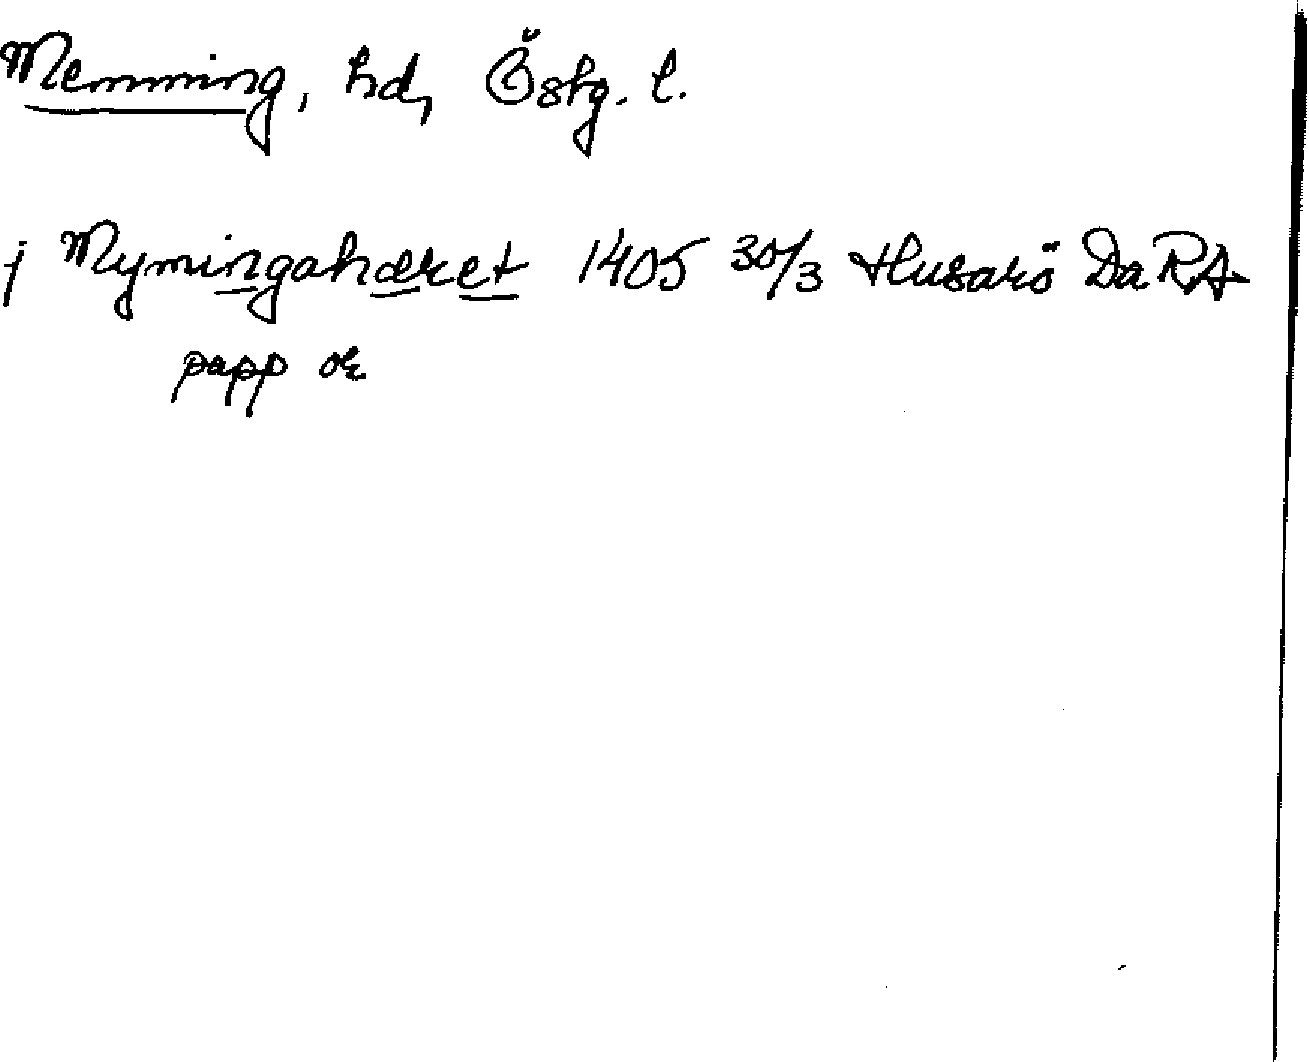 Memming, hd, Östg. l.
j Mymingahæret 1405 30/3 Husarö Da RA
papp or